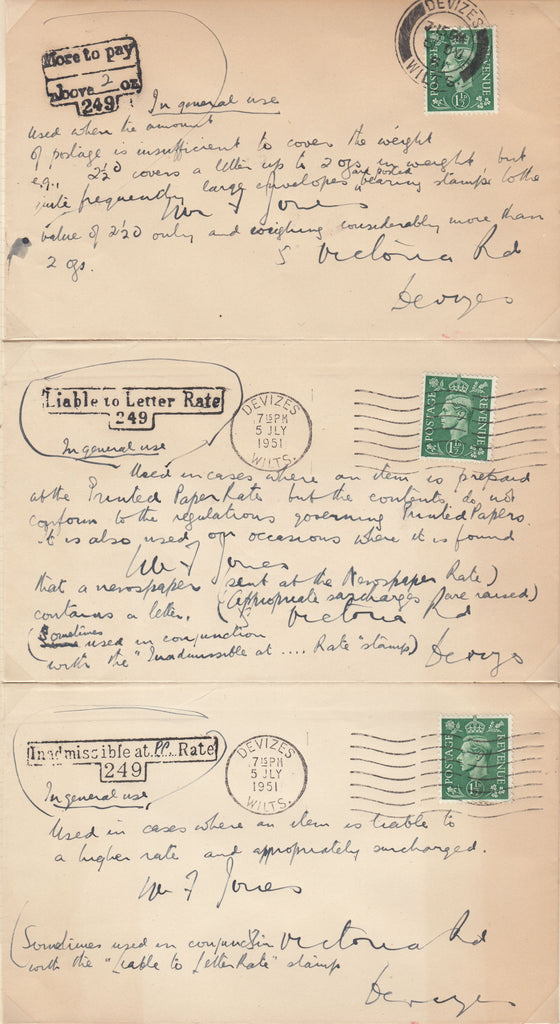 More to pay
above 2 oz
249
DEVIZES
WILTS
POSTAGE
REVENUE
1½D
In general use
Used when the amount
of postage is insufficient to cover the weight
e.g., 2½D covers a letter up to 2 ozs in weight, but
quite frequently large envelopes and posted bearing stamps to the
Mr F Jones
value of 2½D only and weighing considerably more than
5 Victoria Rd
2 ozs.
Devizes
Liable to Letter Rate
249
DEVIZES
7 15 PM
5 JLY
1951
WILTS.
POSTAGE
REVENUE
1½D
In general use
Used in cases where an item is prepaid
at the Printed Paper Rate but the contents do not
conform to the regulations governing Printed Papers.
It is also used on occasions where it is found
Mr F Jones
that a newspaper sent at the Newspaper Rate)
contains a letter. (Appropriate surcharges are raised)
5 Victoria Rd
(Sometimes used in conjunction
with the "Inadmissible at .... Rate" stamps)
Devizes
Inadmissible at P.P. Rate
249
DEVIZES
7 15 PM
5 JLY
1951
WILTS.
POSTAGE
REVENUE
1½D
In general use,
Used in cases where an item is liable to
a higher rate and appropriately surcharged.
Mr F Jones
5 Victoria Rd
(Sometimes used in conjunction
with the "Liable to Letter Rate" stamp
Devizes